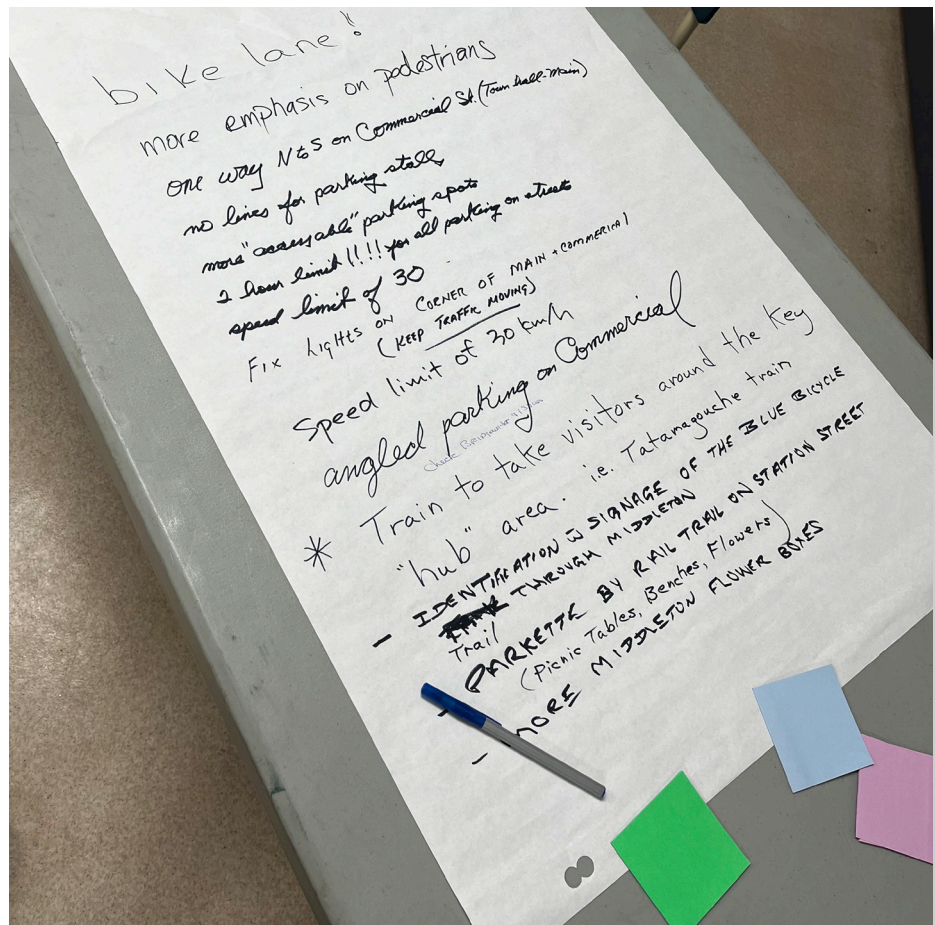 bike lane!
more emphasis on pedestrians
one way N to S on Commercial St. (Town hall-Main)
no lines for parking stalls
more "accessable" parking spots
2 hour limit!!!! for all parking on streets
speed limit of 30
FIX LIGHTS ON CORNER OF MAIN + COMMERICAl
(KEEP TRAFFIC MOVING)
Speed limit of 30 km/h
angled parking on Commercial
check Bridgewater
* Train to take visitors around the key
"hub" area. i.e. Tatamagouche train
- IDENTIFICATION SIGNAGE OF THE BLUE BICYCLE
THROUGH MIDDLETON
Trail
- PARKETTE BY RAIL TRAIL ON STATION STREET
(Picnic Tables, Benches, Flowers)
- MORE MIDDLETON FLOWER BOXES